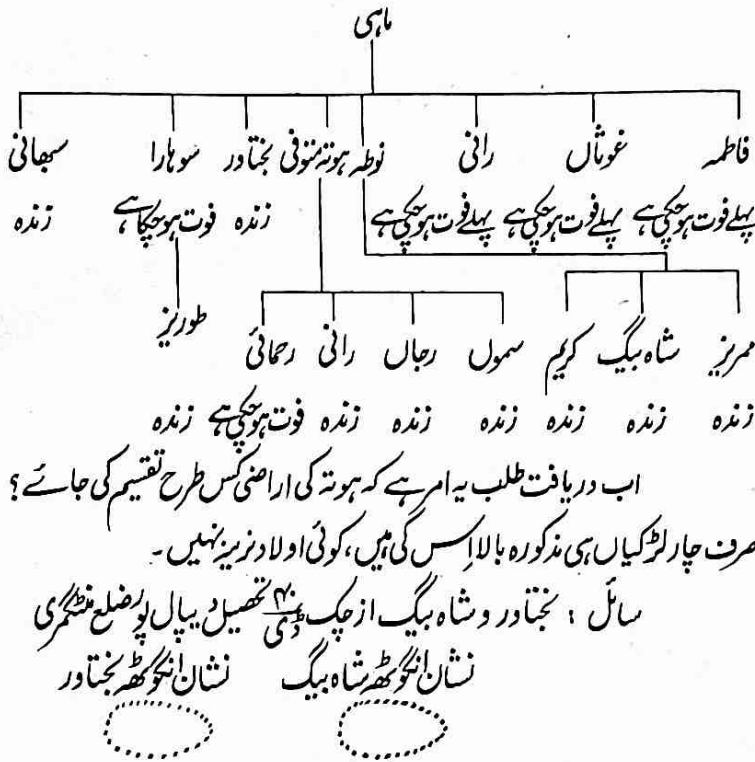 ماہی
فاطمہ غوثاں رانی نوطہ ہوتہ متوفی بختاور سوہارا سبھانی
پہلے فوت ہو چکی ہے پہلے فوت ہو چکی ہے پہلے فوت ہو چکی ہے زندہ فوت ہو چکا ہے زندہ
ممریز شاہ بیگ کریم سموں رجاں رانی رحمائی طوریز
زندہ زندہ زندہ زندہ زندہ زندہ فوت ہو چکی ہے زندہ
اب دریافت طلب یہ امر ہے کہ ہوتہ کی اراضی کس طرح تقسیم کی جائے؟
صرف چار لڑکیاں ہی مذکورہ بالا اس کی ہیں، کوئی اولاد نرینہ نہیں۔
سائل: بختاور و شاہ بیگ از چک ڈی تحصیل دیپال پور ضلع منٹگمری
نشان انگوٹھہ شاہ بیگ نشان انگوٹھہ بختاور